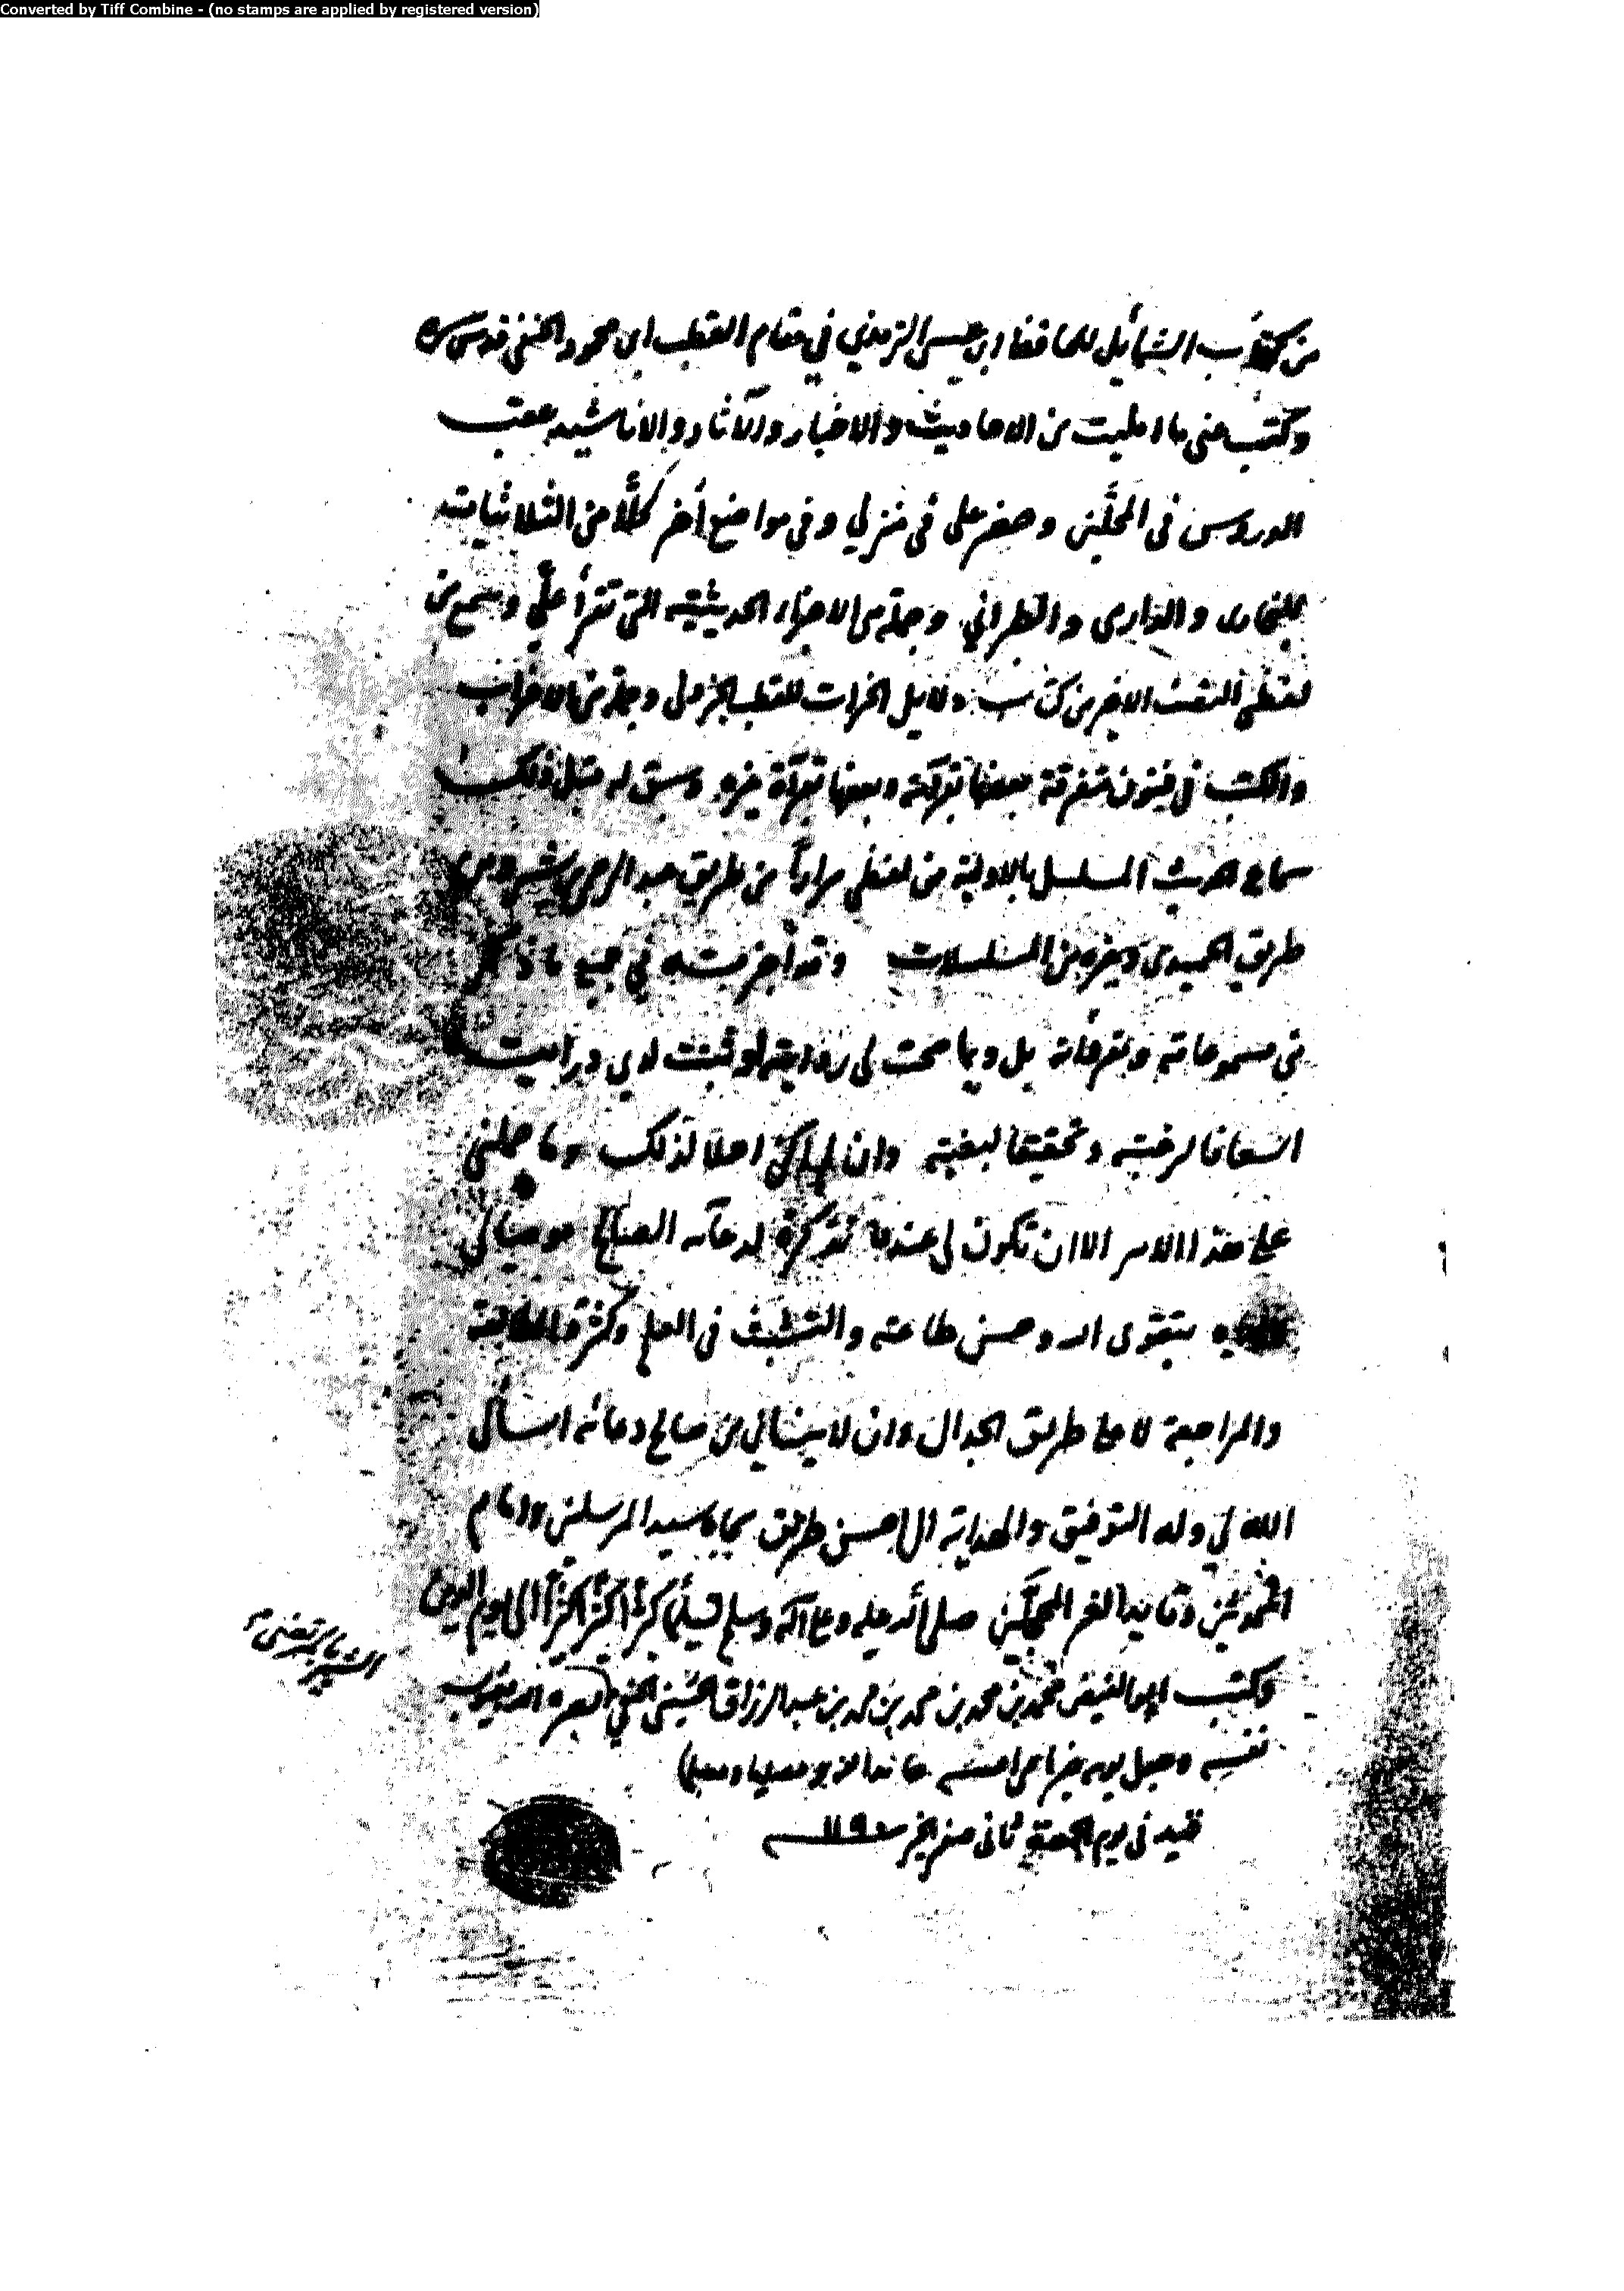 Converted by Tiff Combine - (no stamps are applied by registered version)
من كتاب الشمايل للحافظ ابى عيسى الترمذي في مقام القطب ابى محمود الحنفي قدس سره
وكتب عني ما امليت من الاحاديث والاخبار والآثار والاناشيد عقب
الدروس في المحلين وحضر علي في منزلي وفي مواضع أخر كلًّا من الثلاثيات
للبخارى والدارمى والطبراني وجملة من الاجزاء الحديثية التي تقرأ عليّ وسمع من
لفظي النصف الاخير من كتاب دلايل الخيرات للقطب الجزولى وجملة من الاحزاب
والكتب في فنون متفرقة بعضها بقراءته وبعضها بقراءة غيره وسبق له قبل ذلك
سماع حديث المسلسل بالاولية من لفظي مرارا من طريق عبد الرحمن بن بشر ومن
طريق الحميدى وغيره من المسلسلات وقد أجزت له في جميع ما ذكر
من مسموعاته ومقروءاته بل وبما صحت لى روايته او ثبتت لدي درايته
اسعافا لرغبته وتحقيقا لبغيته وان لم اكن اهلا لذلك وما حملني
على هذا الامر الا ان تكون لى عنده تذكرة لدعآئه الصالح موصيا لي
بتقوى الله وحسن طاعته والتثبت في العلم وكثرة المطالعة
والمراجعة لا على طريق الجدال وان لا ينساني من صالح دعائه اسأل
الله لي وله التوفيق والهداية الى احسن طريق بجاه سيد المرسلين وامام
المتقين وقايد الغر المحجلين صلى الله عليه وعلى آله وسلم تسليماً كثيراً كثيراً الى يوم الدين
وكتب ابو الفيض محمد بن محمد بن محمد بن عبد الرزاق الحسيني الحنفي بصره الله بعيوب
نفسه وجعل يومه خيرا من امسه حامدا لله ومصليا ومسلما
قيد في يوم الجمعة ثانى صفر الخير ١١٩٠
الشهير بالمرتضى